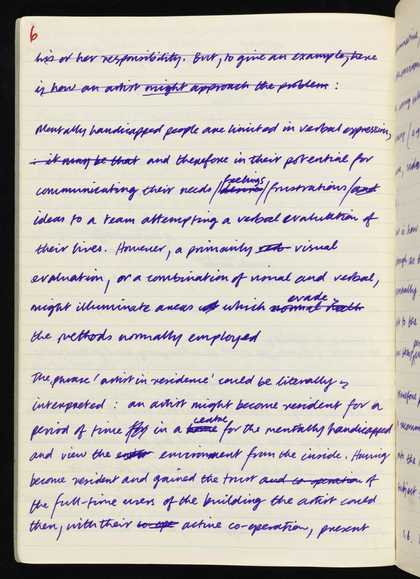 6
his or her responsibility. But, to give an example, here
is how an artist might approach the problem :
Mentally handicapped people are limited in verbal expression,
: it may be that and therefore in their potential for
feelings
communicating their needs / desires / frustrations / and
ideas to a team attempting a verbal evaluation of
their lives. However, a primarily visual
evaluation, or a combination of visual and verbal,
evade
might illuminate areas of which normal
the methods normally employed
The phrase 'artist in residence' could be literally
interpreted : an artist might become resident for a
centre
period of time in a home / for the mentally handicapped
and view the environment from the inside. Having
become resident and gained the trust and co-operation of
the full-time users of the building the artist could
then, with their co-ope active co-operation, present